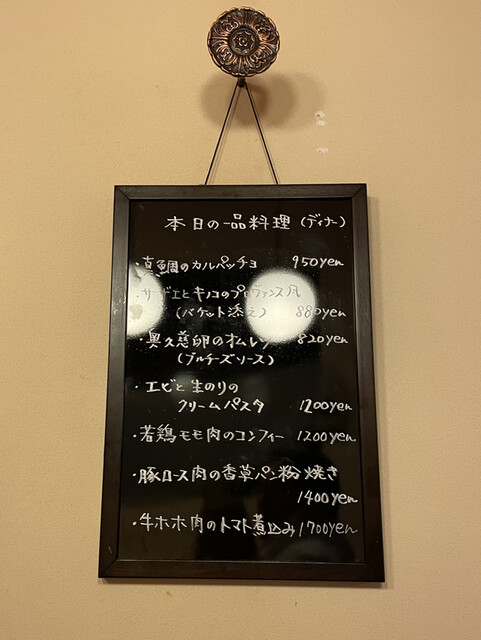 本日の一品料理 (ディナー)
・真鯛のカルパッチョ 950yen
・サザエとキノコのプロヴァンス風
(バケット添え) 880yen
・奥久慈卵のオムレツ 820yen
(ブルーチーズソース)
・エビと生のりの
クリームパスタ 1200yen
・若鶏モモ肉のコンフィー 1200yen
・豚ロース肉の香草パン粉焼き
1400yen
・牛ホホ肉のトマト煮込み 1700yen